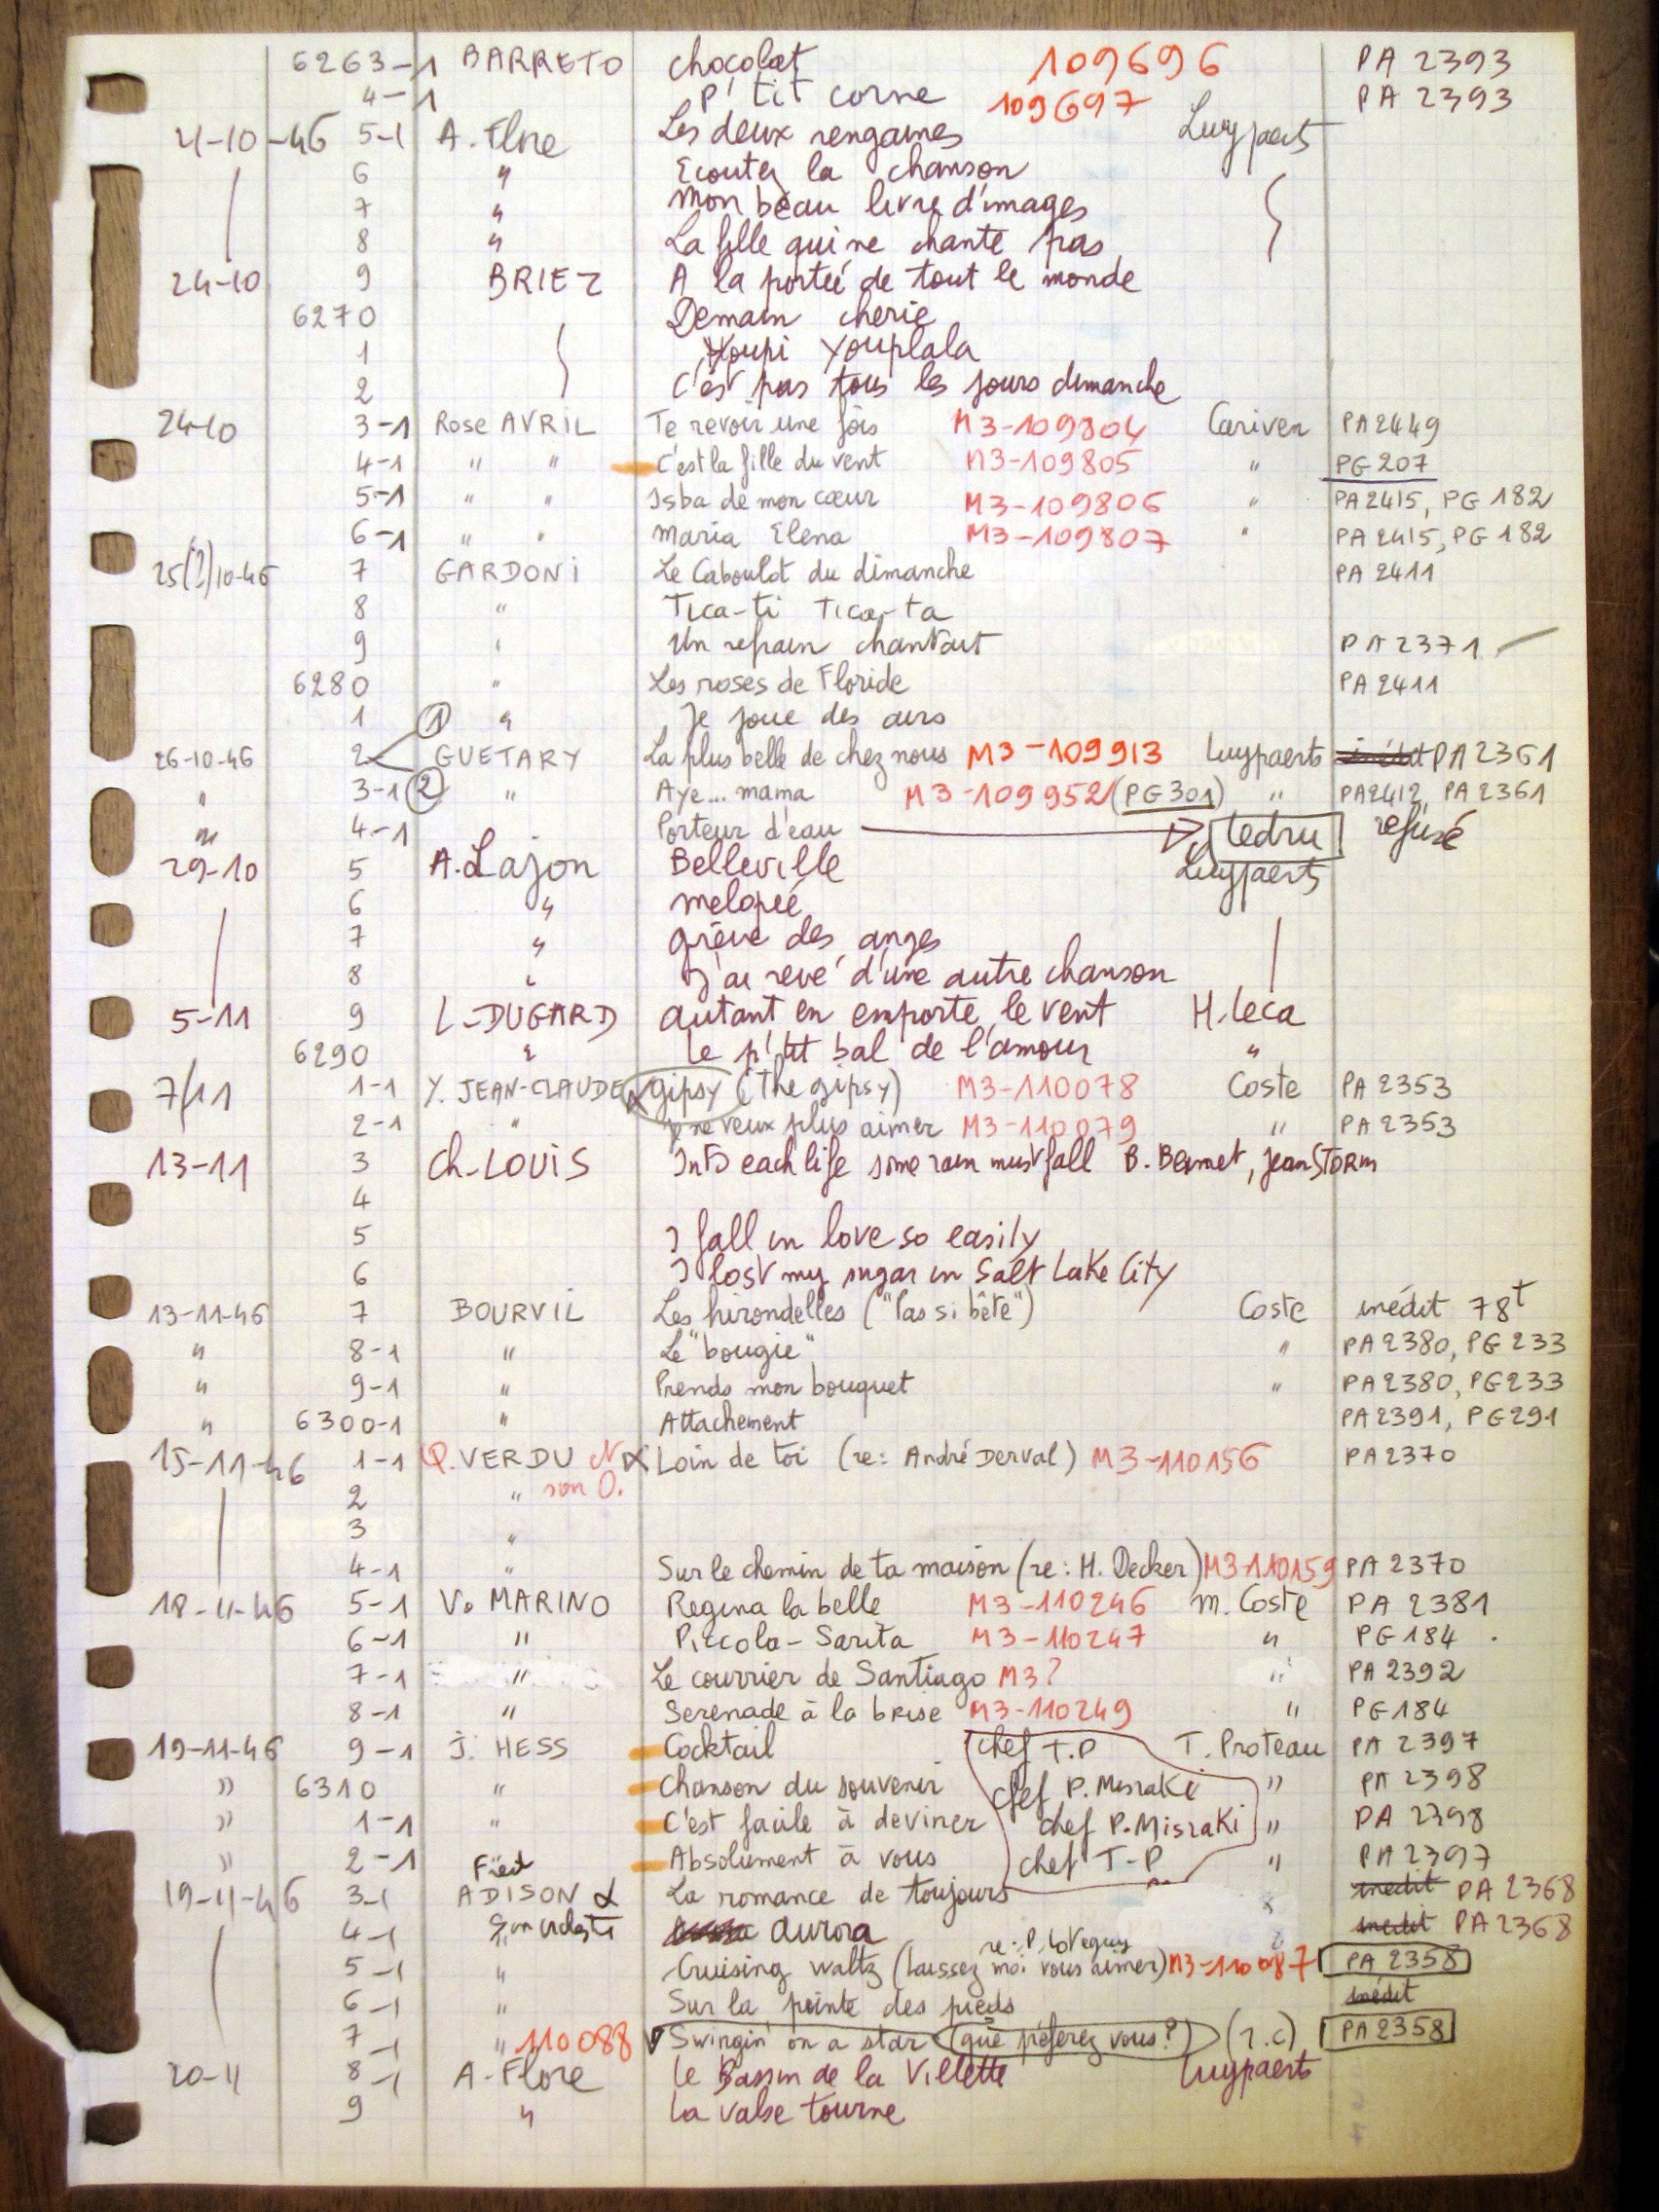 6263-1 BARRETO chocolat 109696 PA 2393
4-1 P'tit corne 109697 PA 2393
21-10-46 5-1 A. Flore Les deux rengaines Luypaerts
6 " Ecoutez la chanson
7 " Mon beau livre d'images
8 " La fille qui ne chante pas
24-10 9 BRIEZ A la portée de tout le monde
6270 Demain cherie
1 Youpi Youplala
2 C'est pas tous les jours dimanche
24-10 3-1 Rose AVRIL Te revoir une fois M3-109804 Cariven PA2449
4-1 " " C'est la fille du vent M3-109805 " PG 207
5-1 " " Isba de mon cœur M3-109806 " PA2415, PG 182
6-1 " " Maria Elena M3-109807 " PA 2415, PG 182
25(?)10-46 7 GARDONI Le Caboulot du dimanche PA 2411
8 " Tica-ti Tica-ta
9 " Un refrain chantait PA 2371
6280 " Les roses de Floride PA 2411
1 ① " Je joue des airs
26-10-46 2 GUETARY La plus belle de chez nous M3-109913 Luypaerts inédit PA 2361
" 3-1 ② " Aye... mama M3-109952 (PG301) " PA2412, PA 2361
" 4-1 Porteur d'eau Ledru refusé
29-10 5 A. Lajon Belleville Luypaerts
6 " melopée
7 " grève des anges
8 " J'ai revé d'une autre chanson
5-11 9 L-DUGARD autant en emporte le vent H. Leca
6290 " Le p'tit bal de l'amour "
7/11 1-1 Y. JEAN-CLAUDE gipsy (The gipsy) M3-110078 Coste PA 2353
2-1 " Je ne veux plus aimer M3-110079 " PA 2353
13-11 3 Ch-LOUIS Into each life some rain must fall B. Bernet, Jean STORM
4
5 I fall in love so easily
6 I lost my sugar in Salt Lake City
13-11-46 7 BOURVIL Les hirondelles ("Pas si bête") Coste inédit 78t
" 8-1 " Le "bougie" " PA 2380, PG 233
" 9-1 " Prends mon bouquet " PA 2380, PG 233
" 6300-1 " Attachement PA 2391, PG 291
15-11-46 1-1 Q. VERDU Loin de toi (re: André DERVAL) M3-110156 PA2370
2 " son O.
3 "
4-1 " Sur le chemin de ta maison (re: H. Decker) M3-110159 PA 2370
18-11-46 5-1 V. MARINO Regina la belle M3-110246 M. Coste PA 2381
6-1 " Piccola-Sarita M3-110247 " PG 184
7-1 " Le courrier de Santiago M3? " PA 2392
8-1 " Serenade à la brise M3-110249 " PG 184
19-11-46 9-1 J. HESS Cocktail chef T.P T. Proteau PA 2397
" 6310 " Chanson du souvenir chef P. Misraki " PA 2398
" 1-1 " C'est facile à deviner chef P. Misraki " PA 2398
" 2-1 Absolument à vous chef T-P " PA 2397
19-11-46 3-1 Fred ADISON & La romance de toujours inedit PA 2368
4-1 aurora inedit PA 2368
5-1 " Cruising waltz (laissez moi vous aimer) M3-110087 PA 2358
6-1 " Sur la pointe des pieds inédit
7-1 " 110088 Swingin' on a star (que préferez vous?) (r.c) PA 2358
20-11 8-1 A-Flore Le Bassin de la Villette Luypaerts
9 " La valse tourne